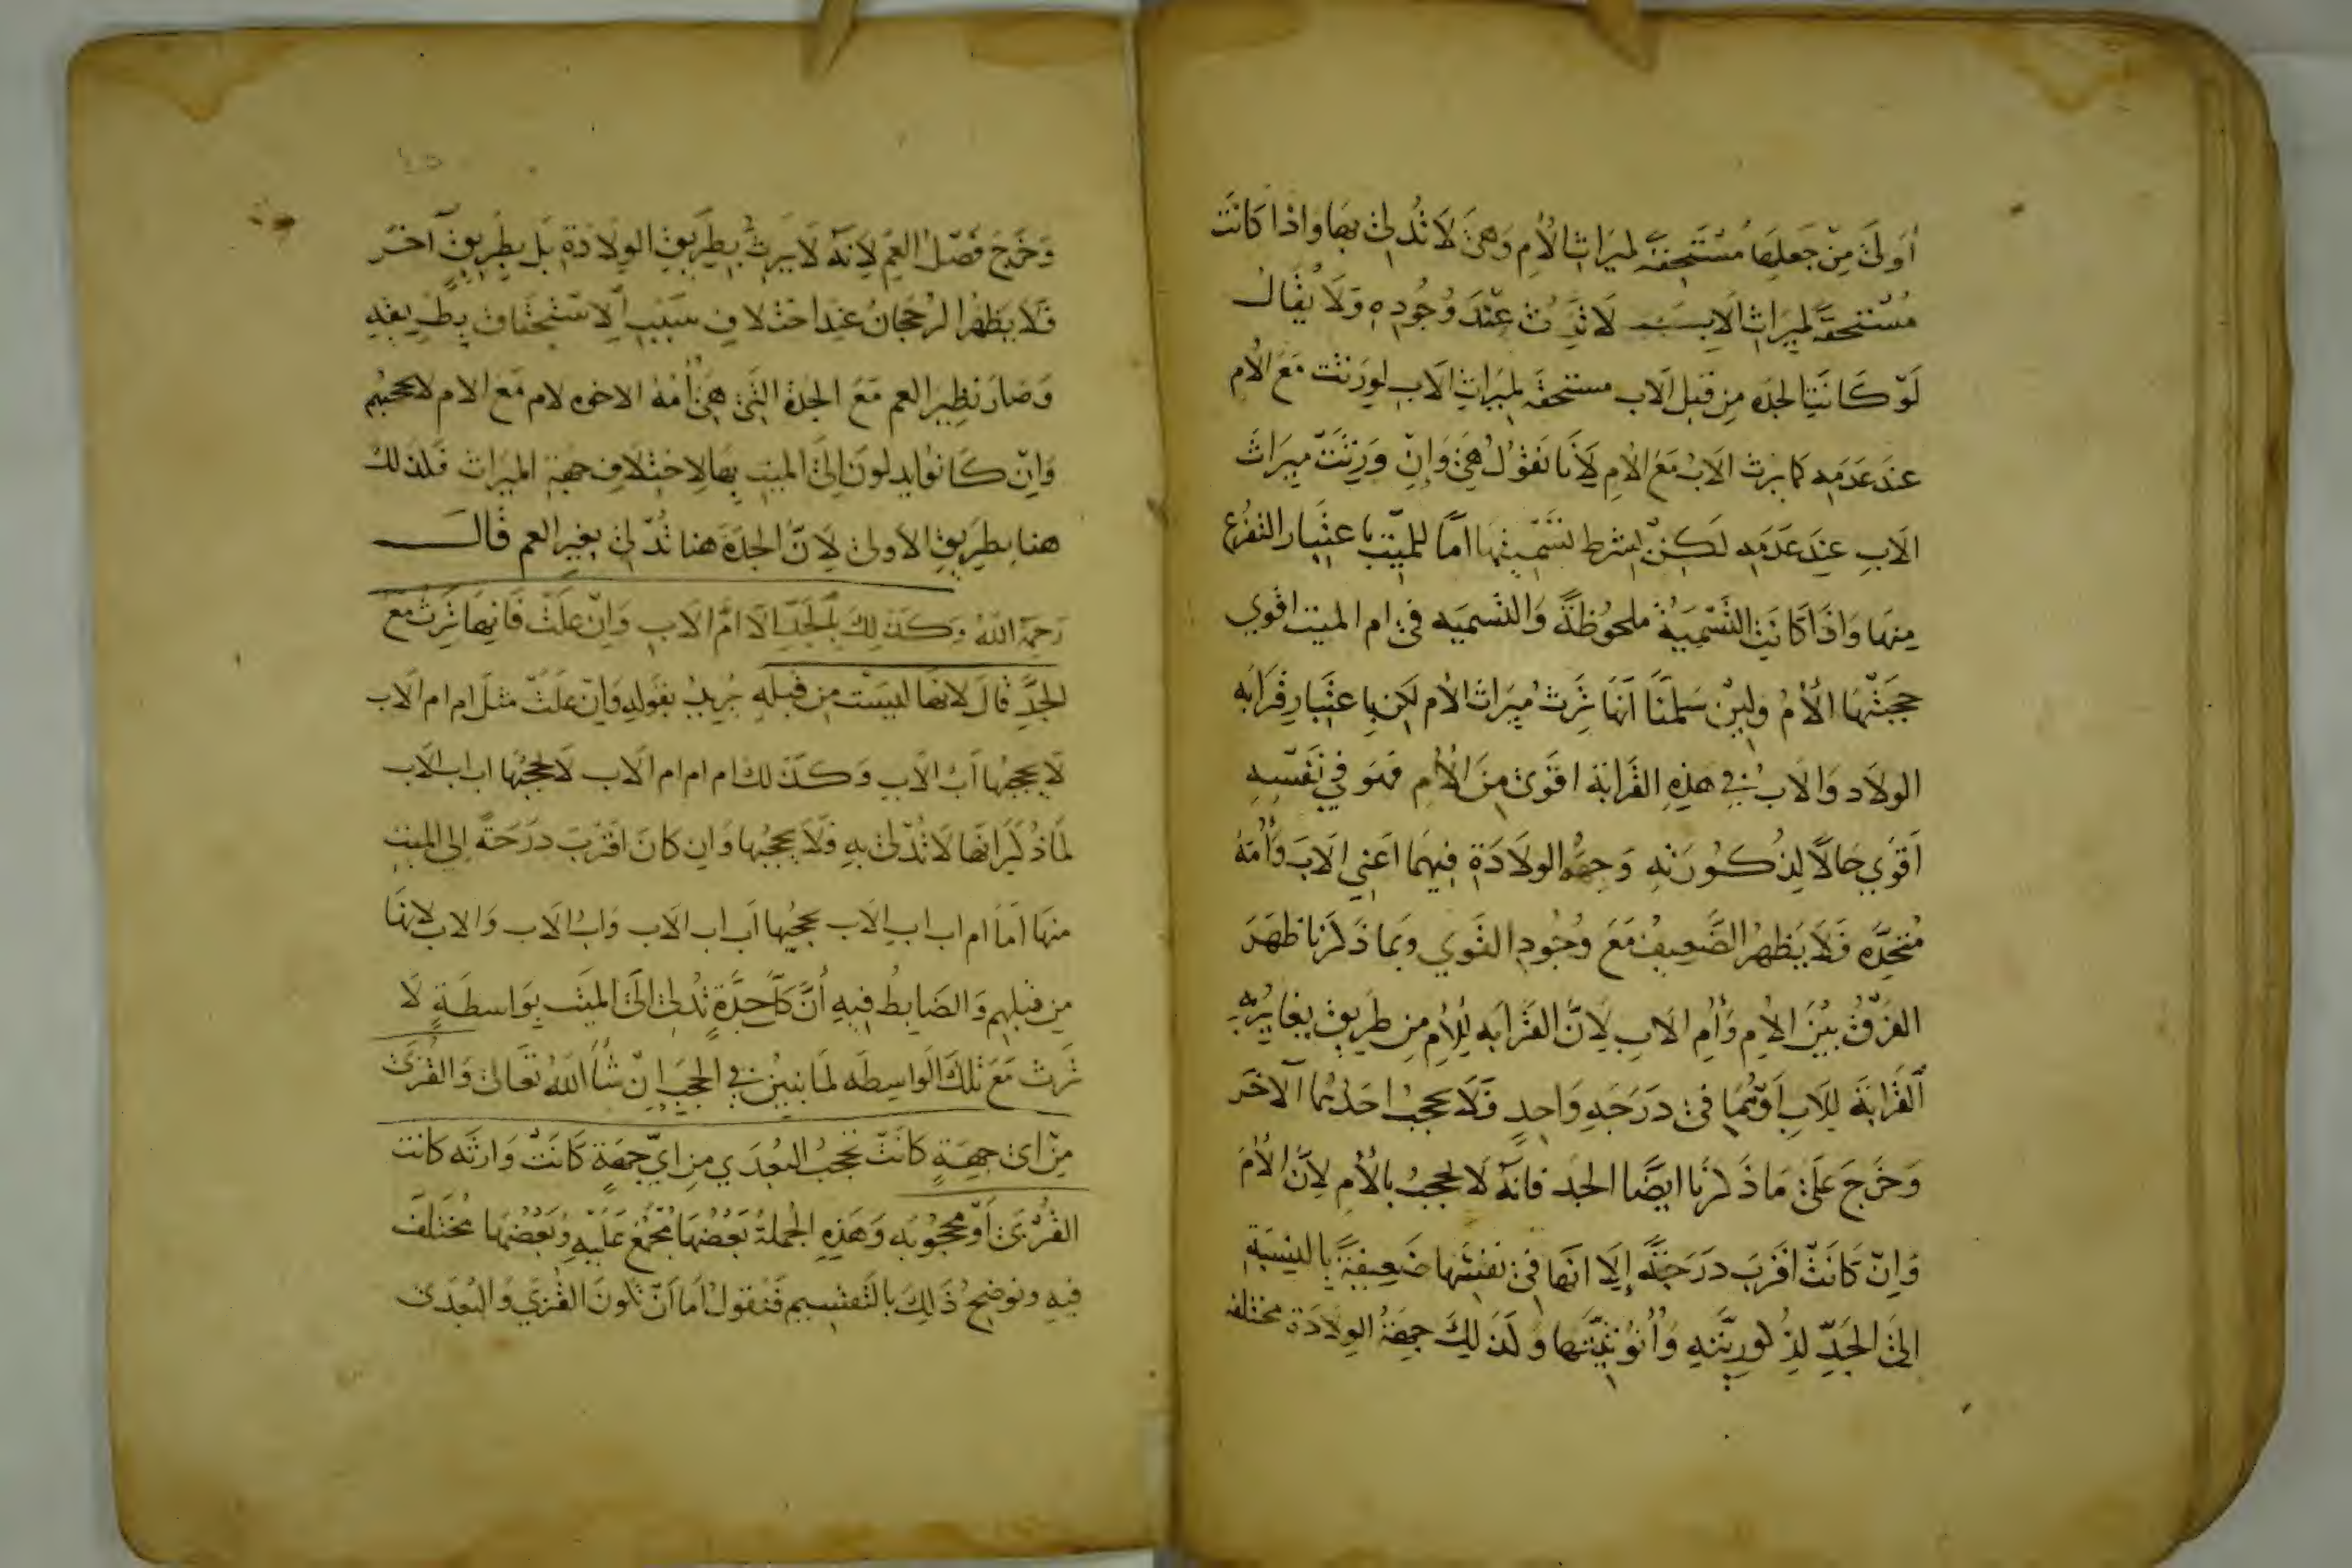 أولى من جعلها مستحقة لميراث الأم وهي لا تدلي بها واذا كانت
مستحقة لميراث الاب لا ترث عند وجوده ولا يقال
لو كانت الجده من قبل الاب مستحقة لميراث الاب لورثت مع الأم
عند عدمه كما يرث الاب مع الام لأنا نقول هي وإن ورثت ميراث
الاب عند عدمه لكن بشرط تسميتها اما للميت باعتبار التفرع
منها واذا كانت التسمية ملحوظة والتسميه في ام الميت اقوي
حجبتها الأم ولين سلمنا أنها ترث ميراث الأم لكن باعتبار قرابه
الولاد والاب في هذه القرابة اقوى من الأم فهو في نفسه
اقوي حالا لذكورته وجهة الولادة فيهما اعني الاب وأمه
متحده فلا يظهر الضعيف مع وجود القوي وبما ذكرنا ظهر
الفرق بين الأم وأم الاب لأن القرابه للأم من طريق يغايره
القرابة للاب أو هما في درجه واحد فلا يحجب احدهما الآخر
وخرج على ما ذكرنا ايضا الجد فانه لا يحجب بالأم لأن الأم
وإن كانت اقرب درجة إلا انها في نفسها ضعيفة بالنسبة
الى الجد لذكوريته وأنوثيتها وكذلك جهة الولادة مختلفه
وخرج فصل العم لانه لا يرث بطريق الولادة بل بطريق آخر
فلا يظهر الرجحان عند اختلاف سبب الاستحقاق بطريقه
وصار نظير العم مع الجدة التي هي أمه الاخوه لام مع الام لا يحجبهم
وإن كانوا يدلون إلى الميت بها لاختلاف جهة الميراث فلذلك
هنا بطريق الاولى لأن الجدة هنا تدلي بغير العم قال
رحمه الله وكذلك بالجد الا ام الاب وإن علت فانها ترث مع
الجد قال لانها ليست من قبله يريد بقوله وان علت مثل ام ام الاب
لا يحجبها اب الاب وكذلك ام ام ام الاب لا يحجبها اب اب الاب
لما ذكر انها لا تدلي به فلا يحجبها وان كان اقرب درجة إلى الميت
منها اما ام اب اب الاب يحجبها اب اب الاب واب الاب والاب لانها
من قبلهم والضابط فيه أن كل جدة تدلى الى الميت بواسطة لا
ترث مع تلك الواسطه لما نبين في الحجب إن شأ الله تعالى والقربى
من اى جهة كانت تحجب البعدي من اي جهة كانت وارثه كانت
القربى أو محجوبه وهذه الجملة بعضها مجمع عليه وبعضها مختلف
فيه ونوضح ذلك بالتقسيم فنقول اما أن تكون القربى والبعدى